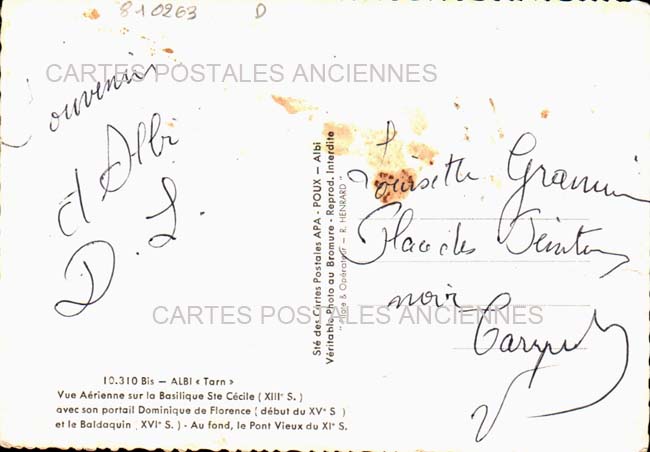 810263 D
CARTES POSTALES ANCIENNES
Souvenir
d'Albi
D. L.
Sté des Cartes Postales APA - POUX — Albi
Véritable Photo au Bromure - Reprod. Interdite
"Pilote & Opérateur — R. HENRARD"
Place des
noir
CARTES POSTALES ANCIENNES
10.310 Bis — ALBI « Tarn »
Vue Aérienne sur la Basilique Ste Cécile ( XIIIᵉ S. )
avec son portail Dominique de Florence ( début du XVᵉ S )
et le Baldaquin ( XVIᵉ S. ) - Au fond, le Pont Vieux du XIᵉ S.